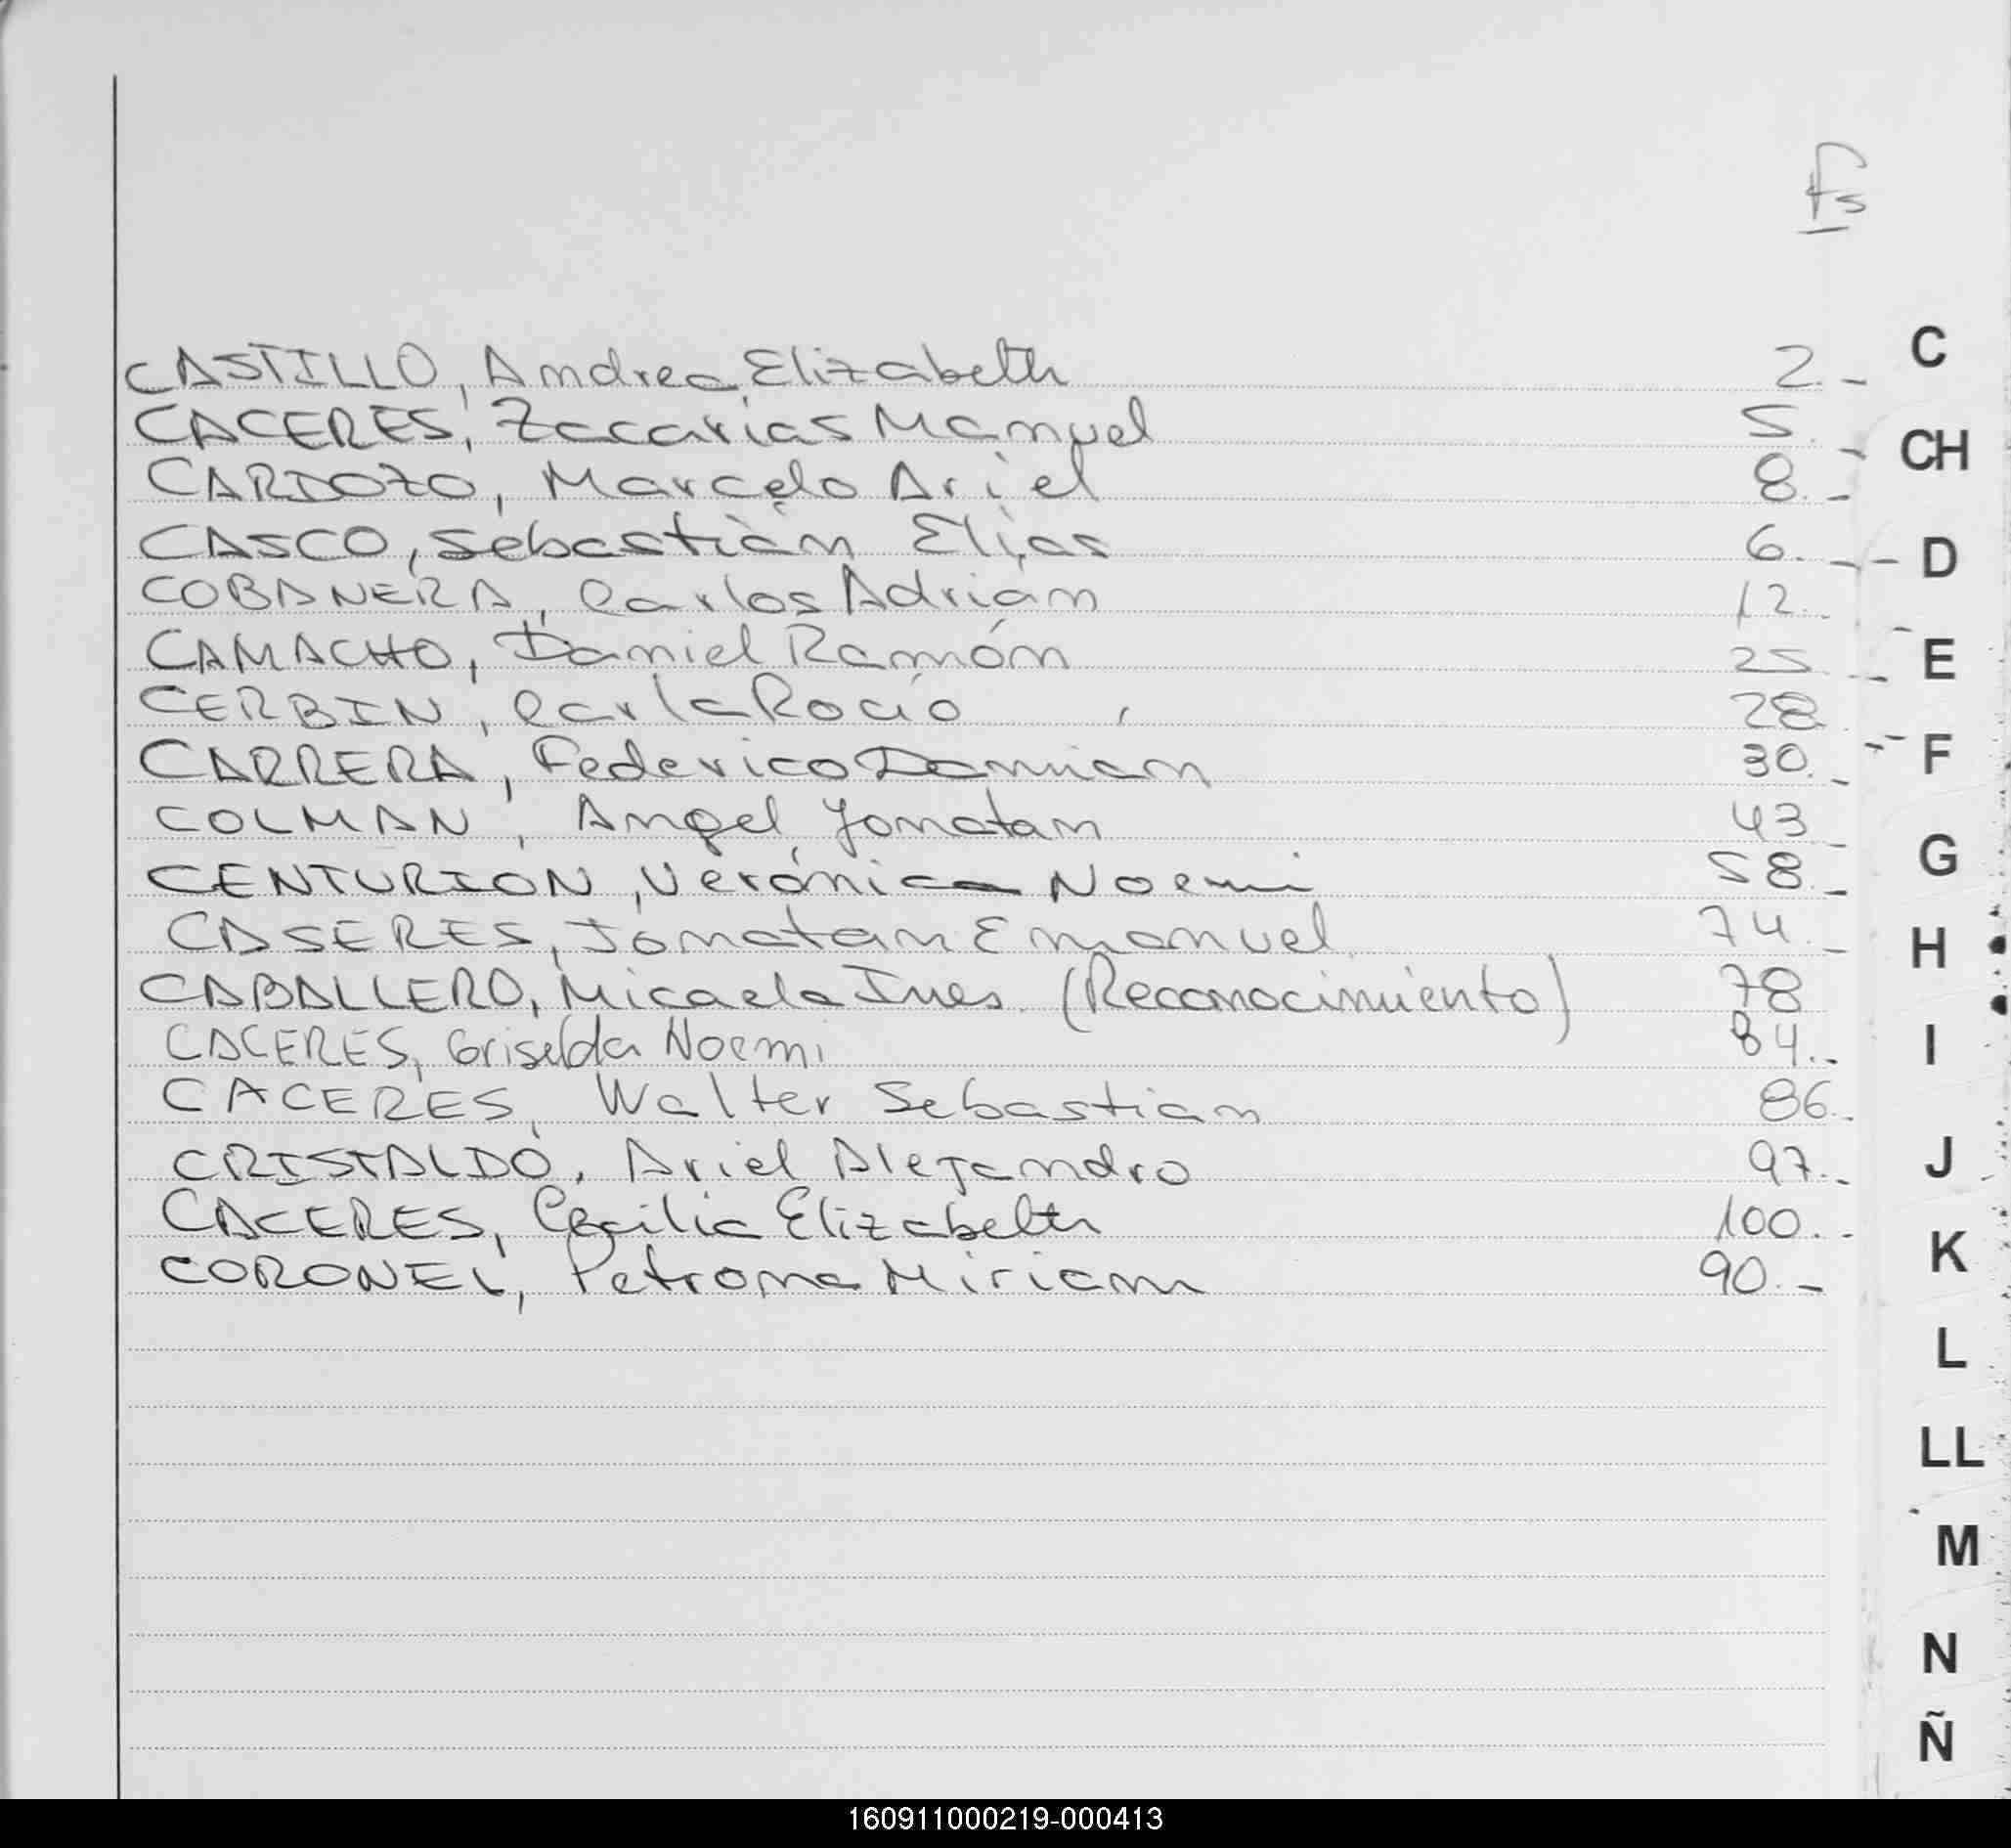 Fs
CASTILLO, Andrea Elizabeth 2.- C
CACERES, Zacarias Manuel 5.- CH
CARDOZO, Marcelo Ariel 8.-
CASCO, Sebastián Elias 6.- D
COBANERA, Carlos Adrián 12.-
CAMACHO, Daniel Ramón 25.- E
CERBIN, Carla Rocío 28.
CARRERA, Federico Damian 30.- F
COLMAN, Angel Jonatan 43
CENTURION, Verónica Noemi 58.- G
CASERES, Jonatan Emanuel 74.- H
CABALLERO, Micaela Ines. (Reconocimiento) 78
CACERES, Griselda Noemi 84.- I
CACERES, Walter Sebastian 86.-
CRISTALDO, Ariel Alejandro 97.- J
CACERES, Cecilia Elizabeth 100.-
CORONEL, Petrona Miriam 90.- K
L
LL
M
N
Ñ
160911000219-000413